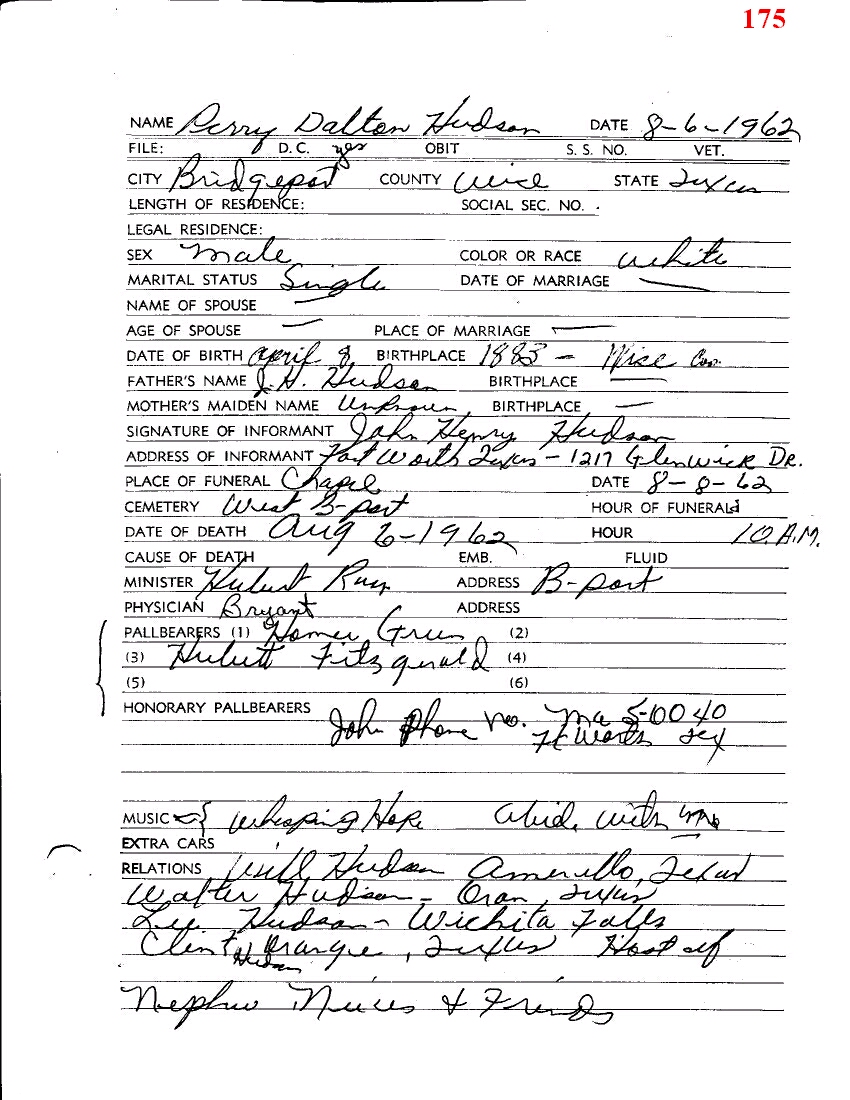 175
NAME Perry Dalton Hudson DATE 8-6-1962
FILE: D.C. yes OBIT S. S. NO. VET.
CITY Bridgeport COUNTY Wise STATE Texas
LENGTH OF RESIDENCE: SOCIAL SEC. NO. .
LEGAL RESIDENCE:
SEX Male COLOR OR RACE White
MARITAL STATUS Single DATE OF MARRIAGE —
NAME OF SPOUSE —
AGE OF SPOUSE — PLACE OF MARRIAGE —
DATE OF BIRTH April 8, BIRTHPLACE 1883 - Wise Co.
FATHER'S NAME J.H. Hudson BIRTHPLACE —
MOTHER'S MAIDEN NAME Unknown BIRTHPLACE —
SIGNATURE OF INFORMANT John Henry Hudson
ADDRESS OF INFORMANT Fort Worth Texas - 1217 Glenwick Dr.
PLACE OF FUNERAL Chapel DATE 8-8-62
CEMETERY West B-port HOUR OF FUNERAL
DATE OF DEATH Aug 6-1962 HOUR 10 A.M.
CAUSE OF DEATH EMB. FLUID
MINISTER Hubert Ray ADDRESS B-port
PHYSICIAN Bryant ADDRESS
PALLBEARERS (1) Homer Green (2)
(3) Fitzgerald (4)
(5) (6)
HONORARY PALLBEARERS John Phone No. Ma 5-0040
Ft Worth Tex
MUSIC Whisping Hope Abide With Me
EXTRA CARS
RELATIONS Will Hudson Amerillo, Texas
Walter Hudson - Oran, Texas
Lee Hudson - Wichita Falls
Clint Orange, Texas Host of
Hudson
Nephew Nieces & Friends